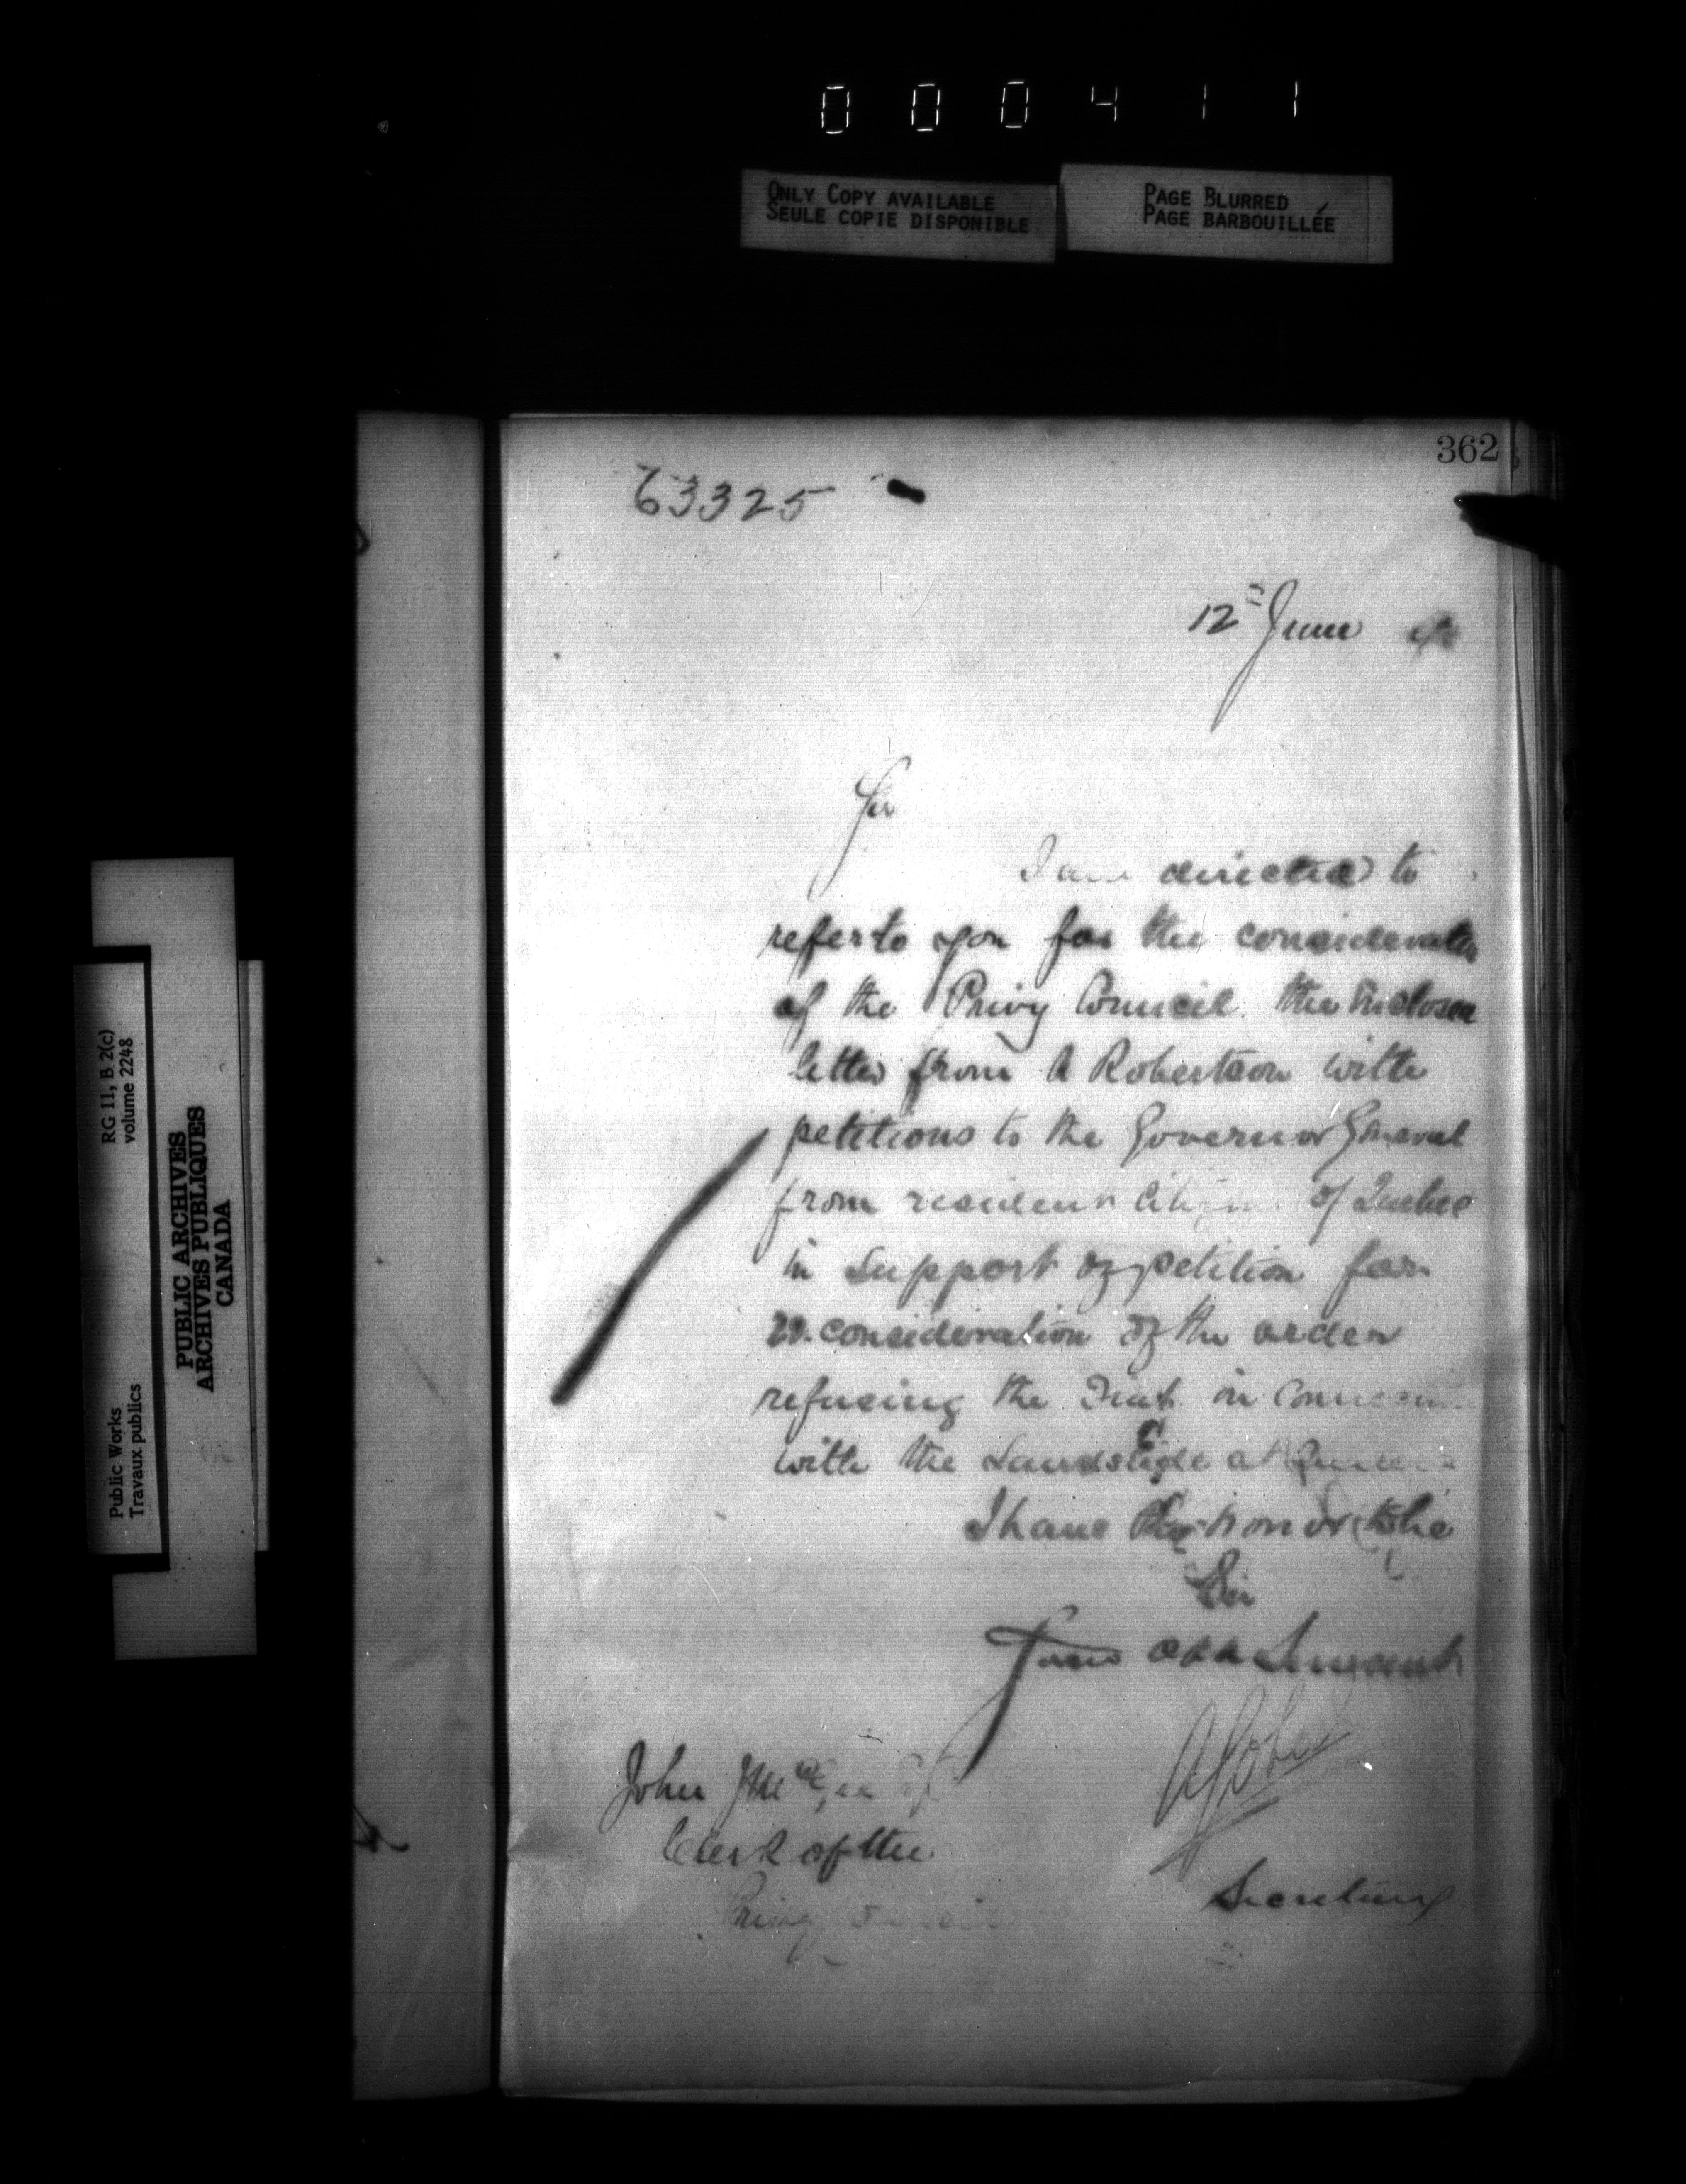 000411
ONLY COPY AVAILABLE
SEULE COPIE DISPONIBLE
PAGE BLURRED
PAGE BARBOUILLÉE
362
63325
12 June
Sir
I am directed to
refer to you for the consideration
of the Privy Council the inclosed
letter from A Robertson with
petitions to the Governor General
from resident Citizens of Quebec
in support of petition for
re-consideration of the order
refusing the Fiat in connection
with the Landslide at Quebec
I have the honor to be
Sir
Your obt Servant
A Gobeil
Secretary
John J McGee Esq
Clerk of the
Privy Council
Public Works
Travaux publics
RG 11, B 2(c)
volume 2248
PUBLIC ARCHIVES
ARCHIVES PUBLIQUES
CANADA